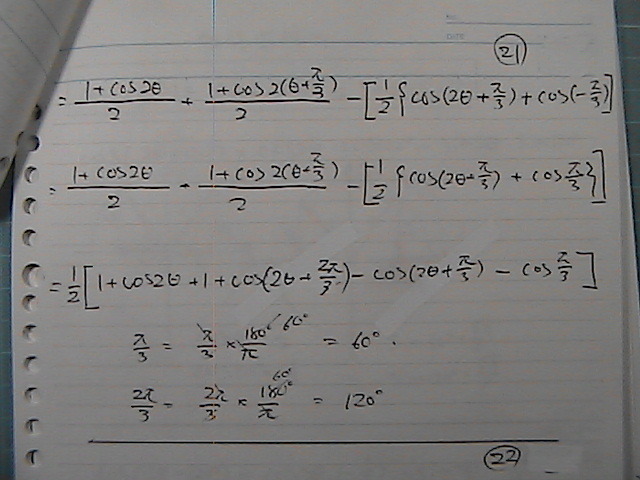 NO.
DATE
21
= (1+cos2θ)/2 + (1+cos2(θ+π/3))/2 - [1/2{cos(2θ+π/3)+cos(-π/3)]
= (1+cos2θ)/2 + (1+cos2(θ+π/3))/2 - [1/2{cos(2θ+π/3) + cosπ/3}]
= 1/2[1+cos2θ+1+cos(2θ+2π/3)-cos(2θ+π/3) - cosπ/3]
π/3 = π/3 × 180°/π 60° = 60°.
2π/3 = 2π/3 × 180°/π 60° = 120°
22